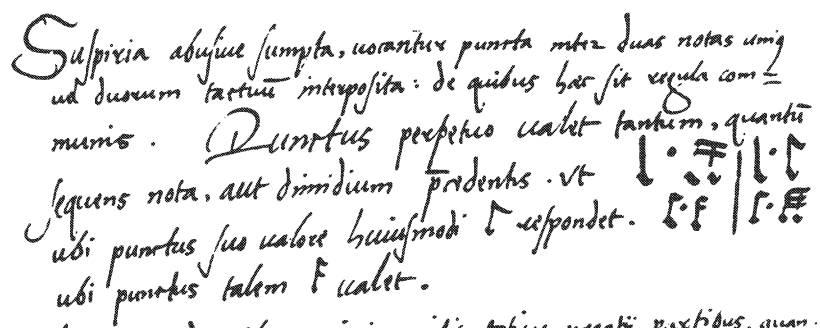 Suspiria abusiue sumpta, uocantur puncta inter duas notas uniq
uel duorum tactuũ interposita: de quibus hæc sit regula com=
munis. Punctus perpetuo ualet tantum, quantũ
sequens nota, aut dimidium p̄cedentis. Vt
ubi punctus suo ualore huiusmodi respondet.
ubi punctus talem ualet.